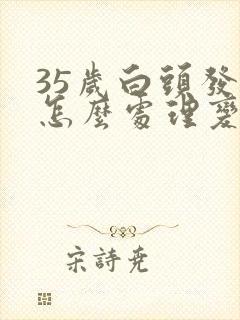 35歲白頭發
怎麼處理變
宋詩堯